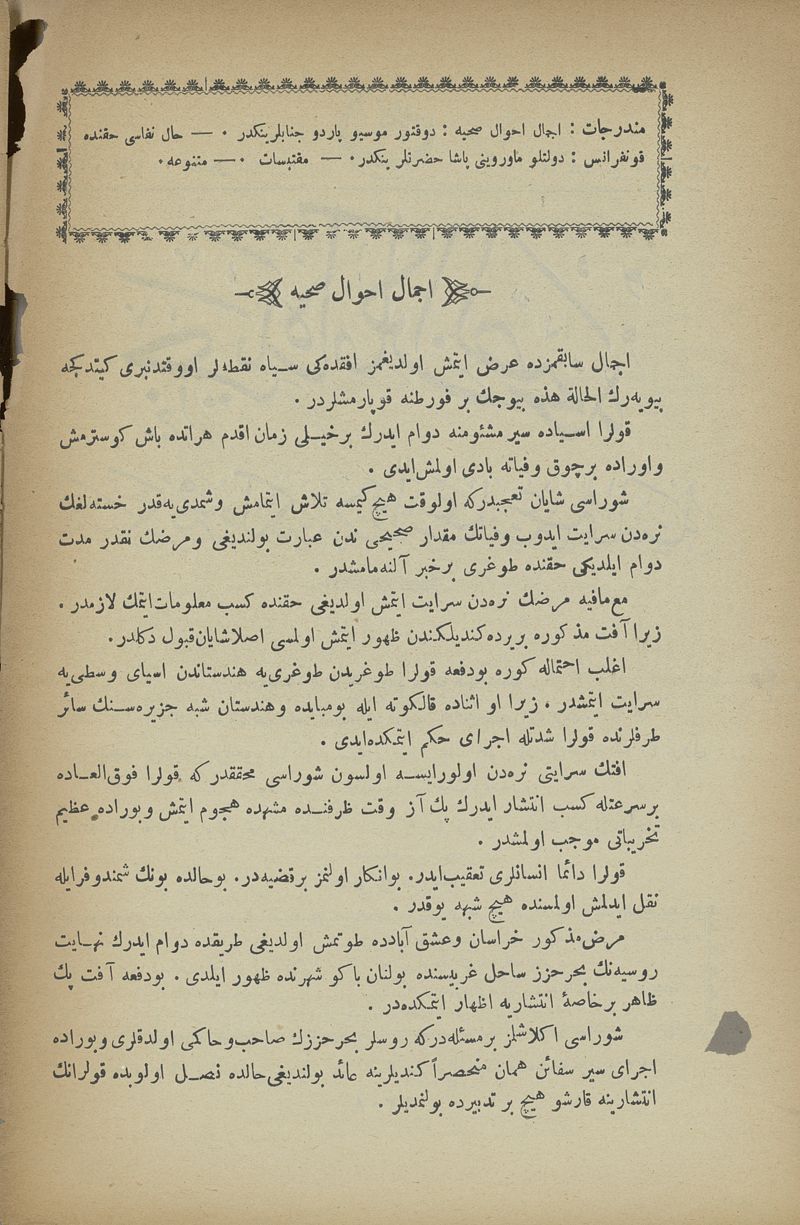 مندرجات : اجمال احوال صحیه : دوقتور موسیو پاردو جنابلرینکدر . — حال نفاسی حقنده
قونفرانس : دولتلو ماوروینی پاشا حضرتلرینکدر . — مقتبسات . — متنوعه .
اجمال احوال صحیه
اجمال سابقمزده عرض ایتمش اولدیغمز افقده‌کی سیاه نقطه‌لر اووقتدنبری کیتدکجه
بیویه‌رك الحالة هذه بیوجك بر فورطنه قوپارمشلردر .
قولرا اسیاده سیر مشئومنه دوام ایدرك برخیلی زمان اقدم هراتده باش کوسترمش
واوراده برچوق وفیاته بادی اولمش‌ایدی .
شوراسی شایان تعجبدرکه اولوقت هیچ کیمسه تلاش ایتمامش وشمدی‌یه‌قدر خسته‌لغك
نره‌دن سرایت ایدوب وفیاتك مقدار صحیحی ندن عبارت بولندیغی ومرضك نقدر مدت
دوام ایلدیکی حقنده طوغری برخبر آلنه‌مامشدر .
مع‌مافیه مرضك نره‌دن سرایت ایتمش اولدیغی حقنده کسب معلومات‌ایتمك لازمدر .
زیرا آفت مذکوره بریرده‌کندیلکندن ظهور ایتمش اولمسی اصلاشایان‌قبول دکلدر.
اغلب احتماله کوره بودفعه قولرا طوغریدن طوغری‌یه هندستاندن اسیای وسطی‌یه
سرایت ایتمشدر ، زیرا او اثناده قالکوته ایله بومبایده وهندستان شبه جزیره‌سنك سائر
طرفلرنده قولرا شدتله اجرای حکم ایتمکده‌ایدی .
افتك سرایتی نره‌دن اولورایسه اولسون شوراسی محققدرکه قولرا فوق‌العاده
برسرعتله کسب انتشار ایدرك پك آز وقت ظرفنده مشهده هجوم ایتمش وبوراده عظیم
تخریباتی موجب اولمشدر .
قولرا دائما انسانلری تعقیب‌ایدر. بوانکار اولنمز برقضیه‌در. بوحالده بونك شمندوفرایله
نقل ایدلمش اولمسنده هیچ شبهه یوقدر .
مرض‌مذکور خراسان وعشق آبادده طوتمش اولدیغی طریقده دوام ایدرك نهایت
روسیه‌نك بحرحزز ساحل غربیسنده بولنان باکو شهرنده ظهور ایلدی . بودفعه آفت پك
ظاهر برخاصۀ انتشاریه اظهار ایتمکده‌در .
شوراسی اکلاشلمز برمسئله‌درکه روسلر بحرحززك صاحب‌وحاکمی اولدقلری وبوراده
اجرای سیر سفائن همان منحصراً کندیلرینه عائد بولندیغی‌حالده نصل اولوبده قولرانك
انتشارینه قارشو هیچ بر تدبیرده بولنمدیلر .